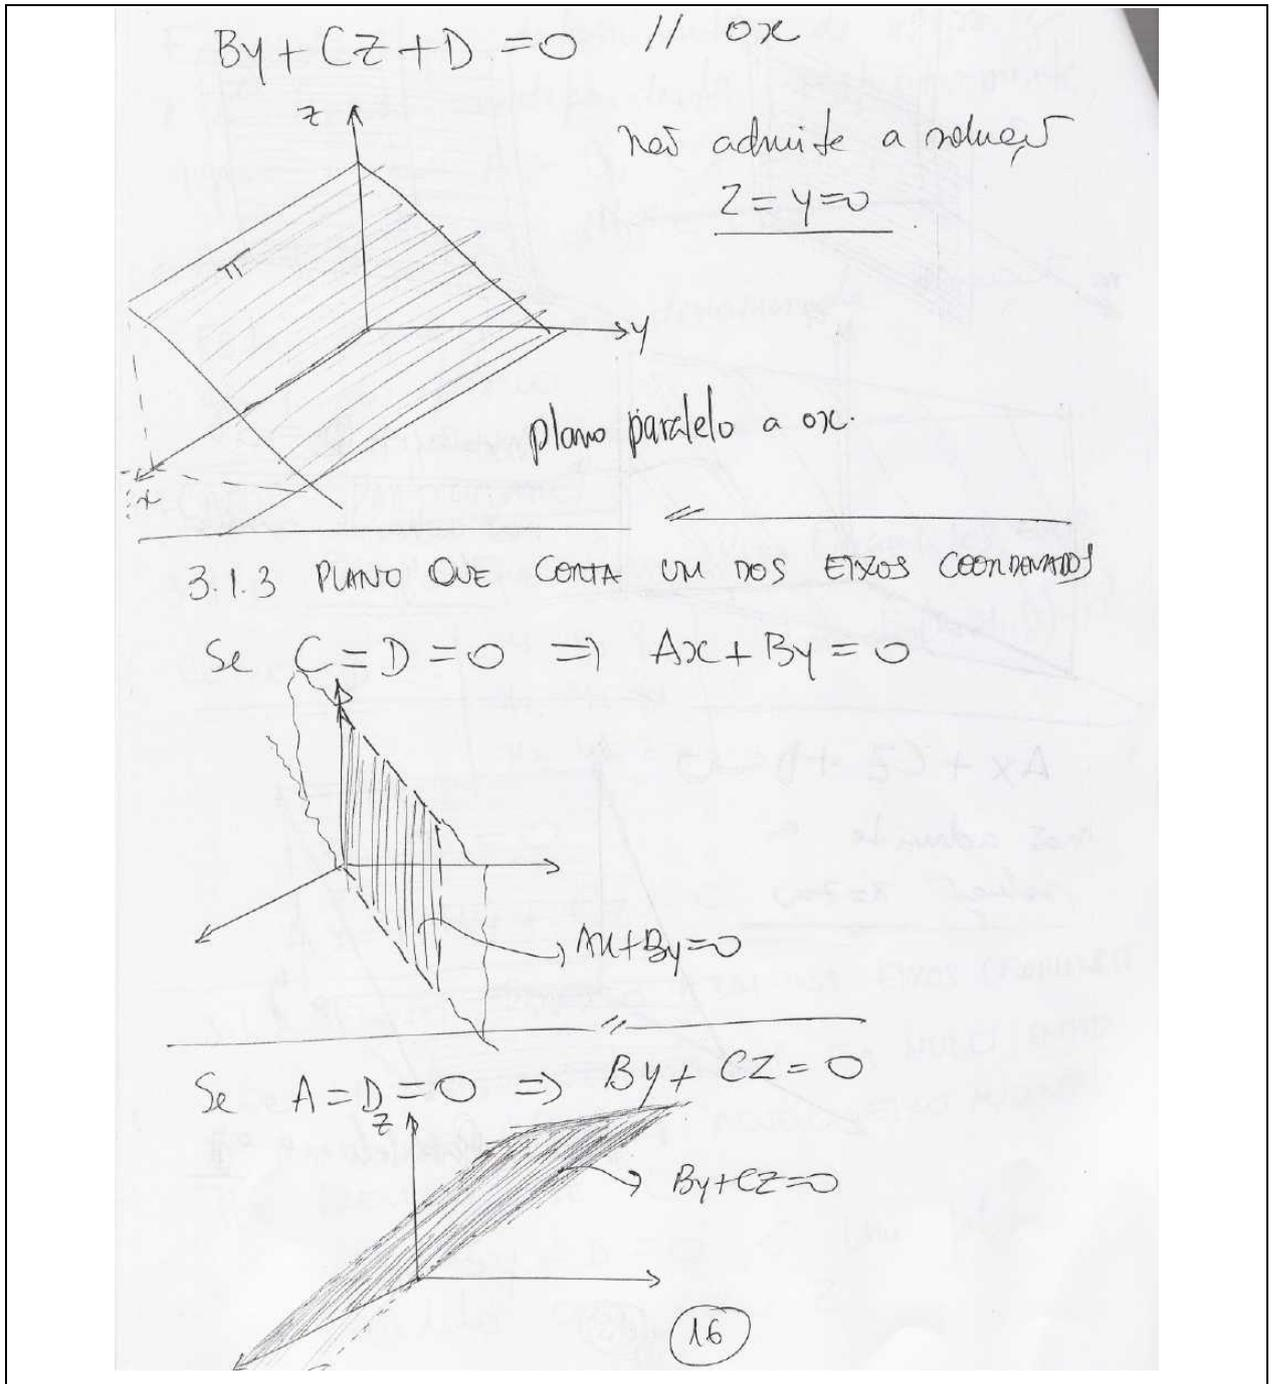 By + CZ + D = 0 // ox
não admite a solução
Z = y = 0
z
π
y
x
plano paralelo a ox.
3.1.3 PLANO QUE CONTA UM DOS EIXOS COORDENADOS
Se C = D = 0 ⇒ Ax + By = 0
Ax+By=0
Se A = D = 0 ⇒ By + CZ = 0
z
By+CZ=0
16